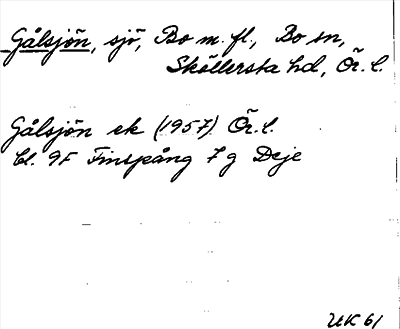 Gålsjön, sjö, Bo m. fl., Bo sn,
Sköllersta hd, Ör. l.
Gålsjön ek (1957) Ör. l.
bl. 9F Finspång 7 g Deje
UK 61